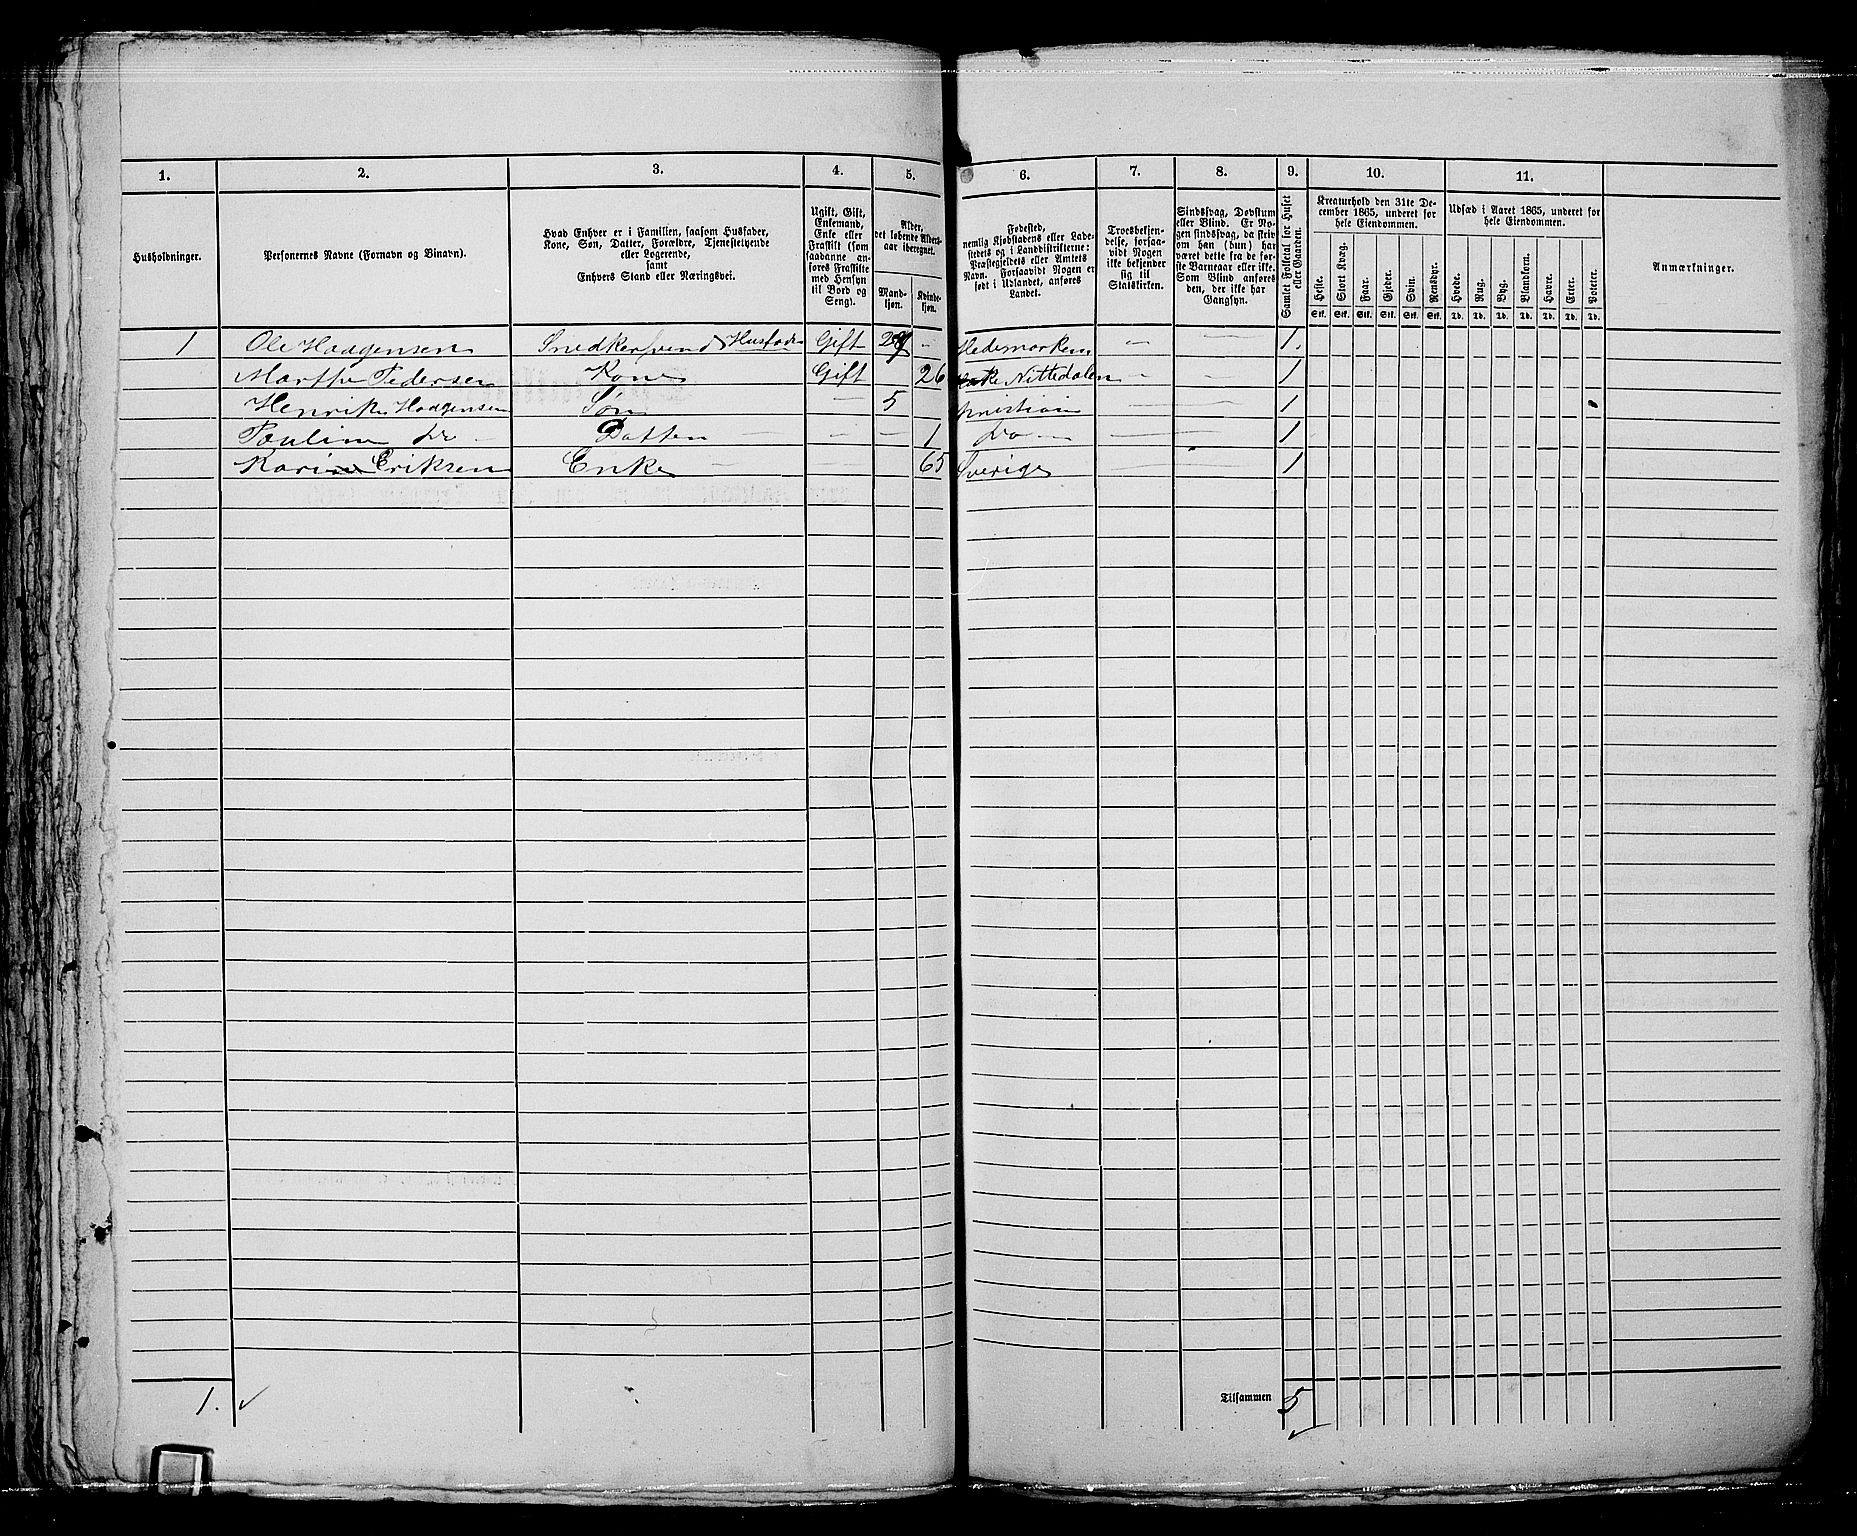 1. 2. 3. 4. 5. 6. 7. 8. 9. 10. 11.
Husholdninger.
Personernes Navne (Fornavn og Binavn).
Hvad Enhver er i Familien, saasom Husfader,
Kone, Søn, Datter, Forældre, Tjenestetyende
eller Logerende,
samt
Enhvers Stand eller Næringsvei.
Ugift, Gift,
Enkemand,
Enke eller
Fraskilt (som
saadanne an-
føres Fraskilte
med Hensyn
til Bord og
Seng).
Alder,
det løbende Alders-
aar iberegnet.
Mand-
kjøn.
Kvinde-
kjøn.
Fødested,
nemlig Kjøbstadens eller Lade-
stedets og i Landdistrikterne:
Præstegjeldets eller Amtets
Navn. Forsaavidt Nogen er
født i Udlandet, anføres
Landet.
Troesbekjen-
delse, forsaa-
vidt Nogen
ikke bekjender
sig til
Statskirken.
Sindssvag, Døvstum
eller Blind. Er No-
gen sindssvag, da skriv
om han (hun) har
været dette fra de før-
ste Barneaar eller ikke.
Som Blind anføres
den, der ikke har
Gangsyn.
Samlet Folketal for Huset
eller Gaarden.
Kreaturhold den 31te De-
cember 1865, underet for
hele Eiendommen.
Heste. Stort Kvæg. Faar. Gjeder. Svin. Rensdyr.
Stk. Stk. Stk. Stk. Stk. Stk.
Udsæd i Aaret 1865, underet for
hele Eiendommen.
Hvede. Rug. Byg. Blankorn. Havre. Erter. Poteter.
Td. Td. Td. Td. Td. Td. Td.
Anmærkninger.
1 Ole Haagensen Snedkersvend Husfader Gift 29 - Hedemarken - - 1.
Marthe Pedersen Kone Gift 26 Nittedalen - - 1
Henrik Haagensen Søn - 5 Kristiania - - 1
Pauline do - Datter - - 1 do - - - 1
Karine Eriksen Enke - 65 Sverige - - 1
1. ✓
Tilsammen 5 ✓